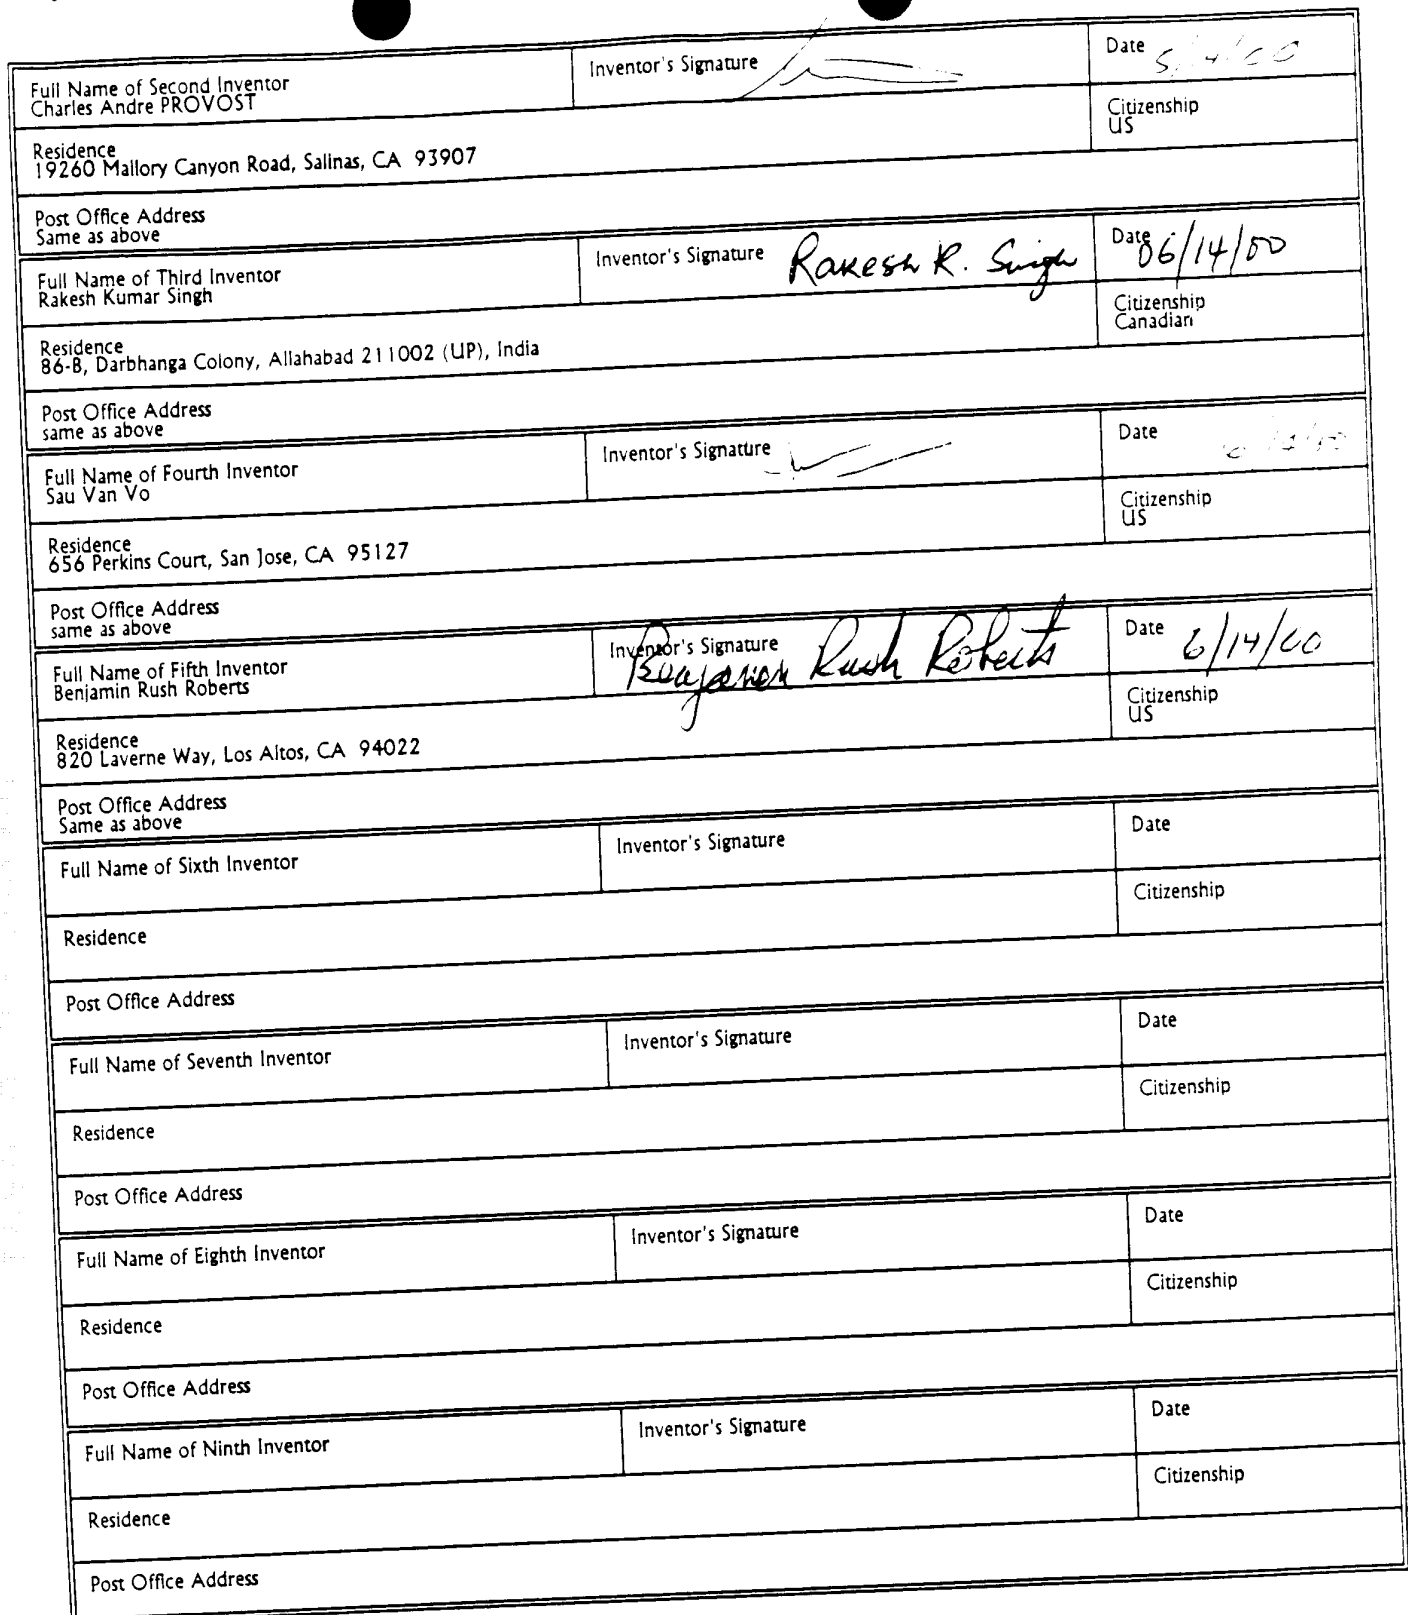 Full Name of Second Inventor
Charles Andre PROVOST
Inventor's Signature
Date
Citizenship
US
Residence
19260 Mallory Canyon Road, Salinas, CA 93907
Post Office Address
Same as above
Full Name of Third Inventor
Rakesh Kumar Singh
Inventor's Signature Rakesh K. Singh
Date 06/14/00
Citizenship
Canadian
Residence
86-B, Darbhanga Colony, Allahabad 211002 (UP), India
Post Office Address
same as above
Full Name of Fourth Inventor
Sau Van Vo
Inventor's Signature
Date
Citizenship
US
Residence
656 Perkins Court, San Jose, CA 95127
Post Office Address
same as above
Full Name of Fifth Inventor
Benjamin Rush Roberts
Inventor's Signature Benjamin Rush Roberts
Date 6/14/00
Citizenship
US
Residence
820 Laverne Way, Los Altos, CA 94022
Post Office Address
Same as above
Full Name of Sixth Inventor
Inventor's Signature
Date
Citizenship
Residence
Post Office Address
Full Name of Seventh Inventor
Inventor's Signature
Date
Citizenship
Residence
Post Office Address
Full Name of Eighth Inventor
Inventor's Signature
Date
Citizenship
Residence
Post Office Address
Full Name of Ninth Inventor
Inventor's Signature
Date
Citizenship
Residence
Post Office Address